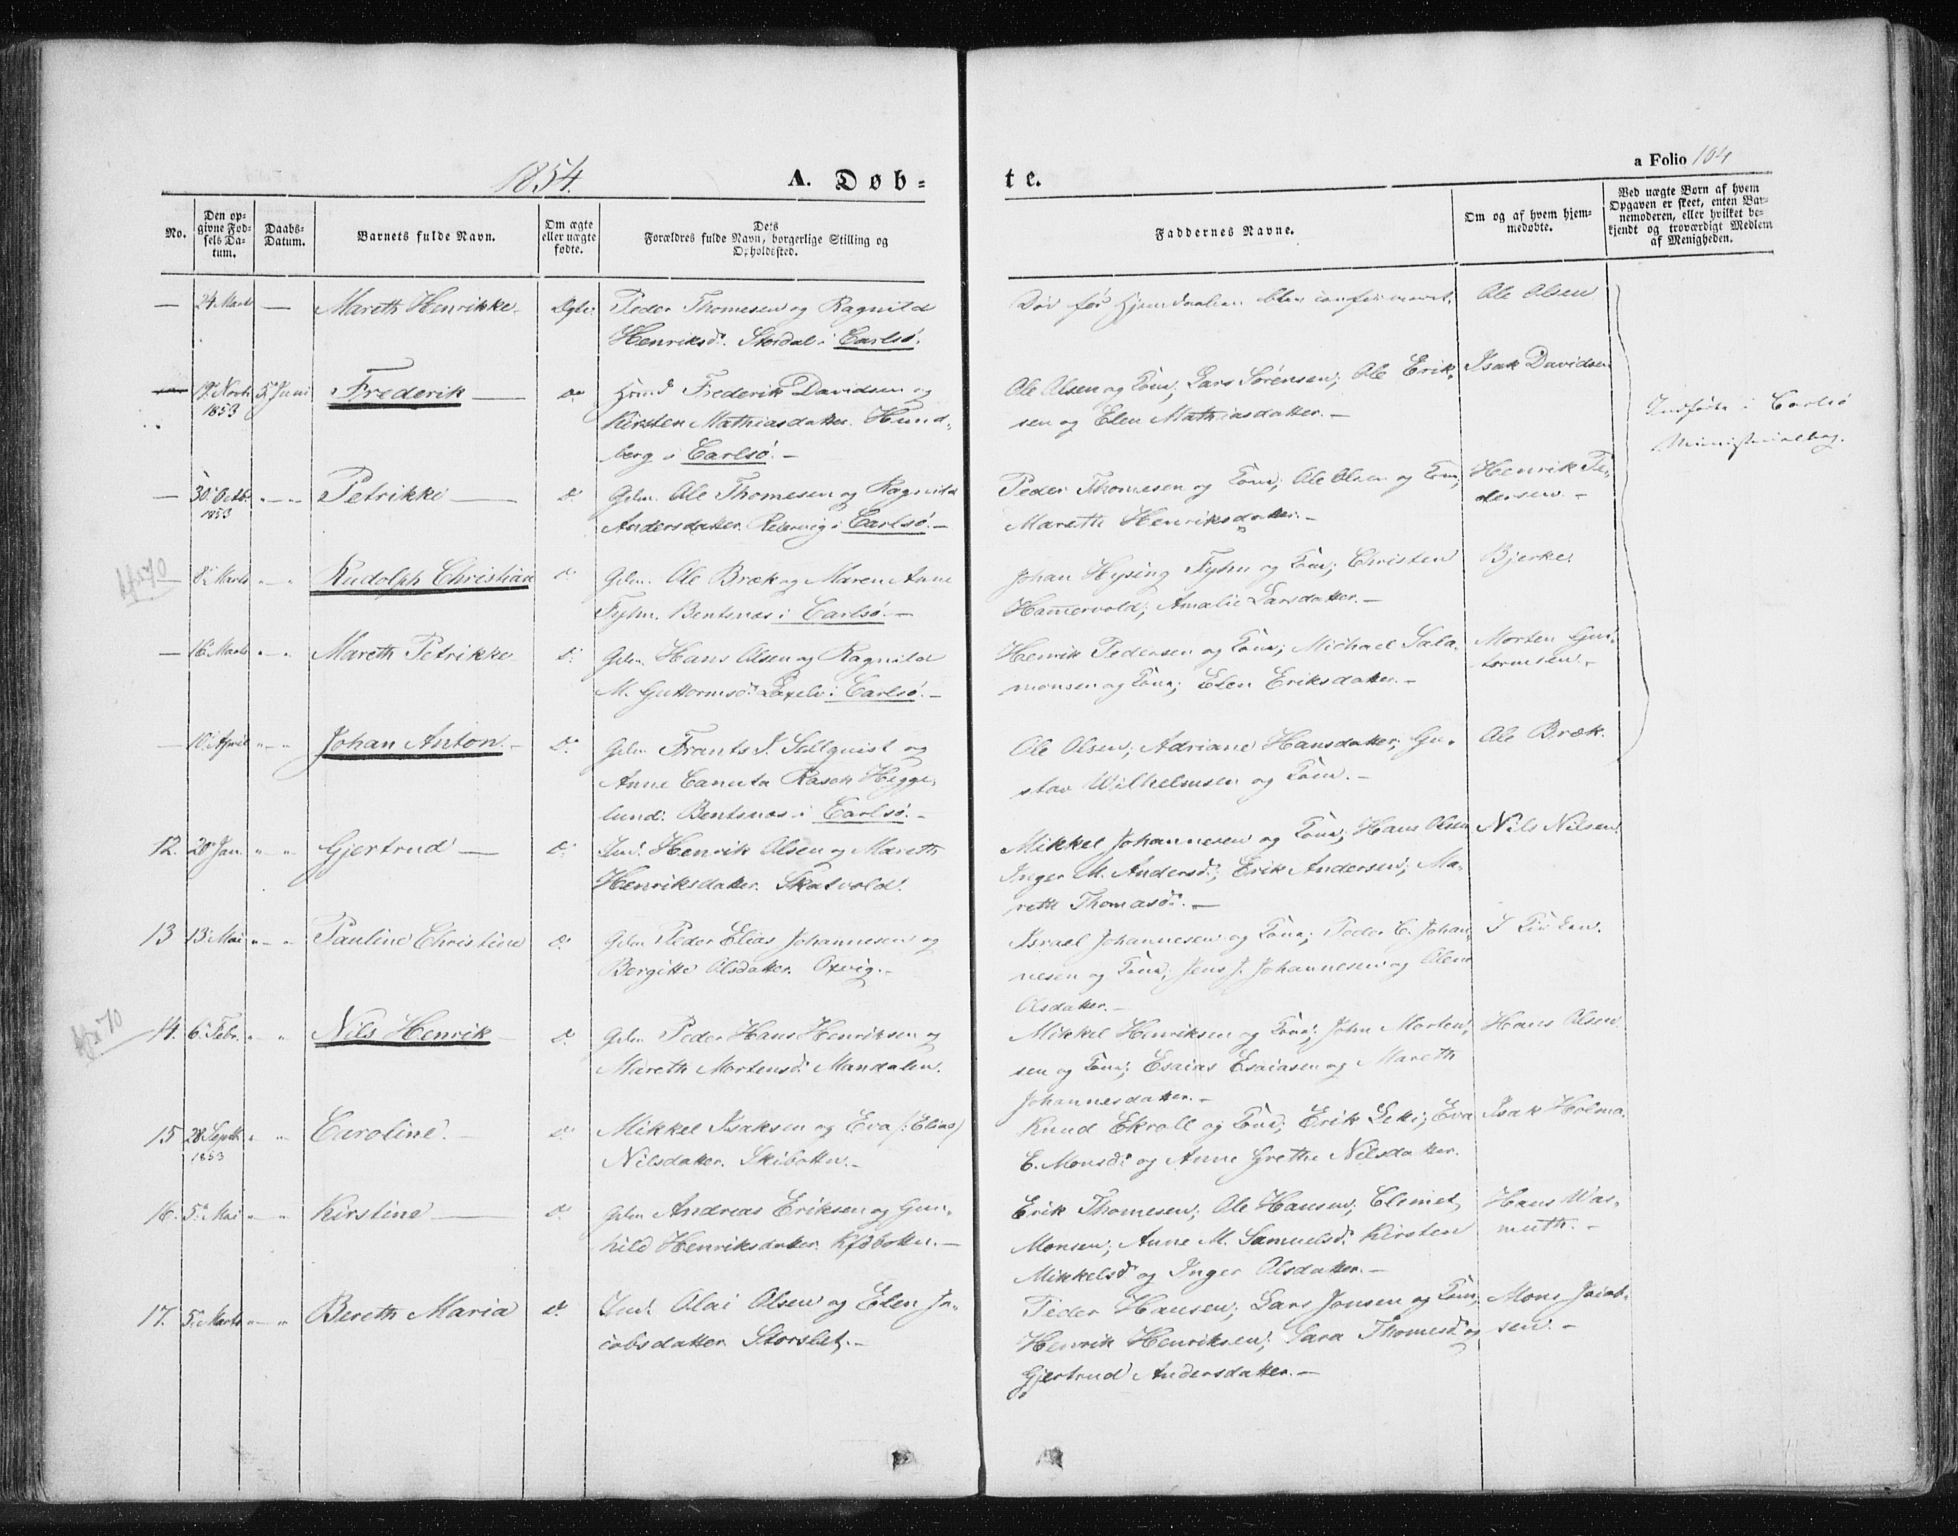 1854.
A. Døb=
te.
a Folio 104
No.
Den op-
givne Fød-
sels Da-
tum.
Daabs-
Datum.
Barnets fulde Navn.
Om ægte
eller uægte
fødte.
Dets
Forældres fulde Navn, borgerlige Stilling og
Opholdssted.
Faddernes Navne.
Om og af hvem hjem-
medøbte.
Ved uægte Børn af hvem
Opgaven er skeet, enten Bar-
nemoderen, eller hvilket be-
kjendt og troværdigt Medlem
af Menigheden.
— 24 Marts — Mareth Henrikke. Ægte: Peder Thomesen og Ragnild
Henriksd. Stordal i Carlsø.
Død før Hjemmedaaben blev confirmeret. Ole Olsen
5 Juni Frederik — do Frederik Davidsen og
1853
Kirsten Mathiasdatter. Hund-
berg i Carlsø. —
Ole Olsen og Kone, Lars Sørensen; Ole Erik- Isak Davidsen
sen og Elen Mathiasdatter. —
Indførte i Carlsø
Ministerialbog.
— 30 Octb. " " Petrikke — do Gdm. Ole Thomesen og Ragnild
1853
Andersdatter. Reiervig i Carlsø. —
Peder Thomesen og Kone; Ole Olsen og Kone; Henrik Pe-
Mareth Henriksdatter. — dersen. —
— 8 Marts " " Rudolph Christian do Gdm. Ole Bræk og Maren Anne
Fyhn. Bentsnæs i Carlsø. —
Johan Hysing Fyhn og Kone; Christen Bjerke.
Hamervold; Amalie Larsdatter. —
— 16 Marts " " Mareth Petrikke do Gdm. Hans Olsen og Ragnild
M. Guttormsd. i Carlsø. —
Henrik Pedersen og Kone; Michael Sala- Morten Gut-
monsen og Kone; Elen Eriksdatter. — tormsen. —
— 10 April " " Johan Anton. — do Gdm. Frants J. Sellquist og
Anne Canuta Rasch Hegge-
lund. Bentsnæs i Carlsø. —
Ole Olsen; Adriane Hansdatter; Gu- Ole Bræk.
stav Wilhelmsen og Kone. —
12. 20 Jan. " " Gjertrud — do Ind. Henrik Olsen og Mareth
Henriksdatter. Skatvold.
Mikkel Johannesen og Kone; Hans Olsen Nils Nilsen
Inger M. Andersd.; Erik Andersen; Ma-
reth Thomasd. —
13 13 Mai " " Pauline Christine do Gdm. Peder Elias Johannesen og
Bergitte Olsdatter. Oxvig. —
Israel Johannesen og Kone; Peder C. Johan-
nesen og Kone; Jens J. Johannesen og Olene
Olsdatter. —
14. 6 Febr. " " Nils Henrik — do Gdm. Peder Hans Henriksen og
Mareth Mortensd. Mandalen.
Mikkel Henriksen og Kone; John Morten- Hans Olsen.
sen og Kone; Esaias Esaiasen og Mareth
Johannesdatter. —
15 28 Septb. " " Caroline. — do Mikkel Isaksen og Eva /: Elias/
1853
Nilsdatter. Skibotten. —
Knud Ekroll og Kone; Erik Leki; Eva Isak Holma.
E. Monsd. og Anne Grethe Nilsdatter.
16. 5 Mai " " Kirstine — do Gdm. Andreas Eriksen og Gun-
hild Henriksdatter. Kfdbotten. —
Erik Thomesen; Ole Hansen; Clemet Hans Was-
Monsen; Anne M. Samuelsd. Kirsten muth. —
Mikkelsd. og Inger Olsdatter. —
17. 5 Marts " " Bereth Maria do Ind. Olai Olsen og Elen Ja-
cobsdatter. Storslet. —
Peder Hansen; Lars Jonsen og Kone; Mons Jacob-
Henrik Henriksen; Sara Thomesd. og sen. —
Gjertrud Andersdatter. —